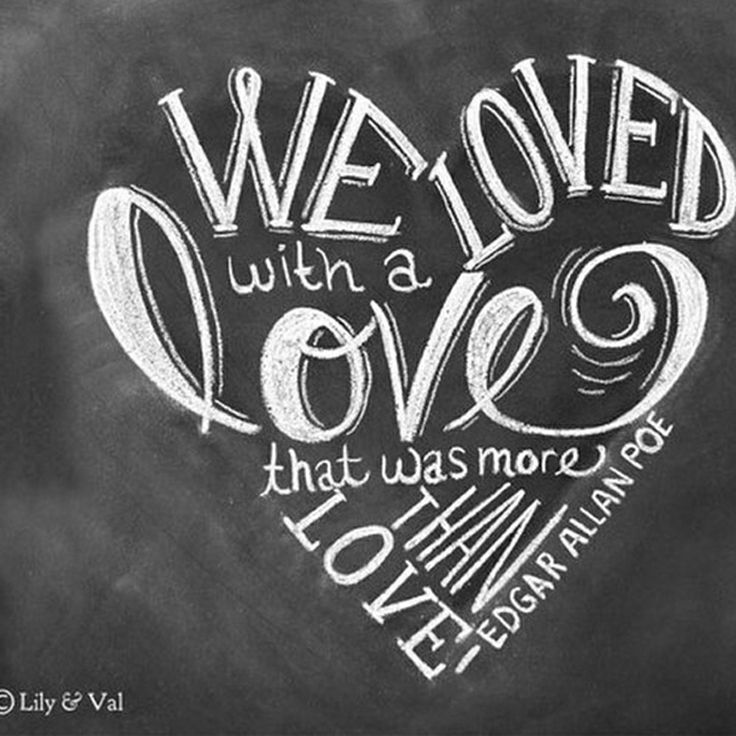 WE LOVED
with a
love
that was more
THAN
LOVE
- EDGAR ALLAN POE
© Lily & Val